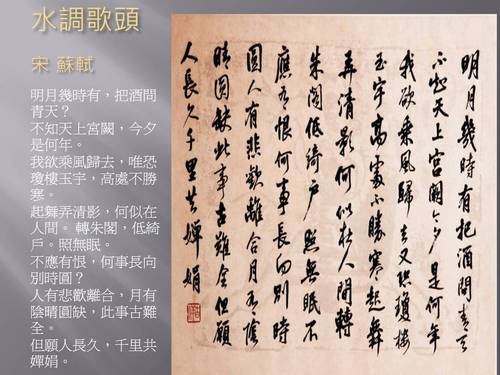 水調歌頭
宋 蘇軾
明月幾時有，把酒問
青天？
不知天上宮闕，今夕
是何年。
我欲乘風歸去，唯恐
瓊樓玉宇，高處不勝
寒。
起舞弄清影，何似在
人間。 轉朱閣，低綺
戶。照無眠。
不應有恨，何事長向
別時圓？
人有悲歡離合，月有
陰晴圓缺，此事古難
全。
但願人長久，千里共
嬋娟。
明月幾時有把酒問青天
不知天上宮闕今夕是何年
我欲乘風歸去又恐瓊樓
玉宇高處不勝寒起舞
弄清影何似在人間轉
朱閣低綺戶照無眠不
應有恨何事長向別時
圓人有悲歡離合月有陰
晴圓缺此事古難全但願
人長久千里共嬋娟